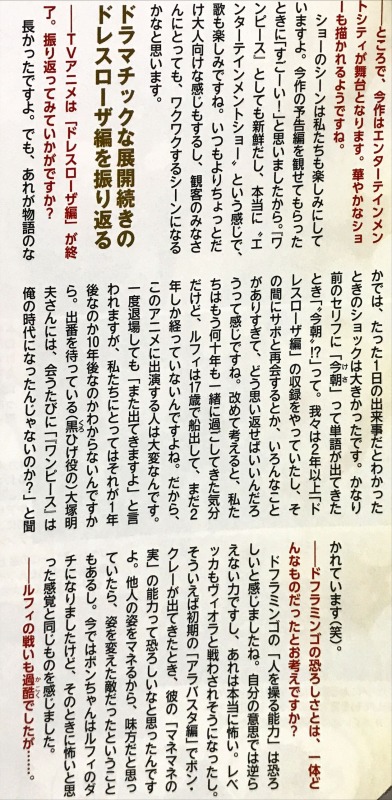 ――ところで、今作はエンターテインメン
トシティが舞台となります。華やかなショ
ーも描かれるようですね。
ショーのシーンは私たちも楽しみにして
いますよ。今作の予告編を観せてもらった
ときに「すごーい！」と思いましたから。『ワ
ンピース』としても新鮮だし、本当に〝エ
ンターテインメントショー〟という感じで、
歌も楽しみですね。いつもよりちょっとだ
け大人向けな感じもするし、観客のみなさ
んにとっても、ワクワクするシーンになる
かなと思います。
ドラマチックな展開続きの
ドレスローザ編を振り返る
――TVアニメは「ドレスローザ編」が終
了。振り返ってみていかがですか？
長かったですよ。でも、あれが物語のな
かでは、たった1日の出来事だとわかった
ときのショックは大きかったです。かなり
前のセリフに「今朝」って単語が出てきた
けさ
とき「今朝!?」って。我々は2年以上「ド
レスローザ編」の収録をやっていたし、そ
の間にサボと再会するとか、いろんなこと
がありすぎて、どう思い返せばいいんだろ
うって感じですね。改めて考えると、私た
ちはもう何十年も一緒に過ごしてきた気分
だけど、ルフィは17歳で船出して、まだ2
年しか経っていないんですよね。だから、
このアニメに出演する人は大変なんです。
一度退場しても「また出てきますよ」と言
われますが、私たちにとってはそれが1年
後なのか10年後なのかわからないんですか
ら。出番を待っている（黒ひげ役の）大塚明
夫さんには、会うたびに「『ワンピース』は
俺の時代になったんじゃないのか？」と聞
かれています（笑）。
――ドフラミンゴの恐ろしさとは、一体ど
んなものだったとお考えですか？
ドフラミンゴの「人を操る能力」は恐ろ
しいと感じましたね。自分の意思では逆ら
えない力ですし、あれは本当に怖い。レベ
ッカもヴィオラと戦わされそうになったし。
そういえば初期の「アラバスタ編」でボン・
クレーが出てきたとき、彼の「マネマネの
実」の能力って恐ろしいなと思ったんです
よ。他人の姿をマネるから、味方だと思っ
ていたら、姿を変えた敵だったということ
もあるし。今ではボンちゃんはルフィのダ
チになりましたけど、そのときに怖いと思
った感覚と同じものを感じました。
――ルフィの戦いも過酷でしたが……。
かこく